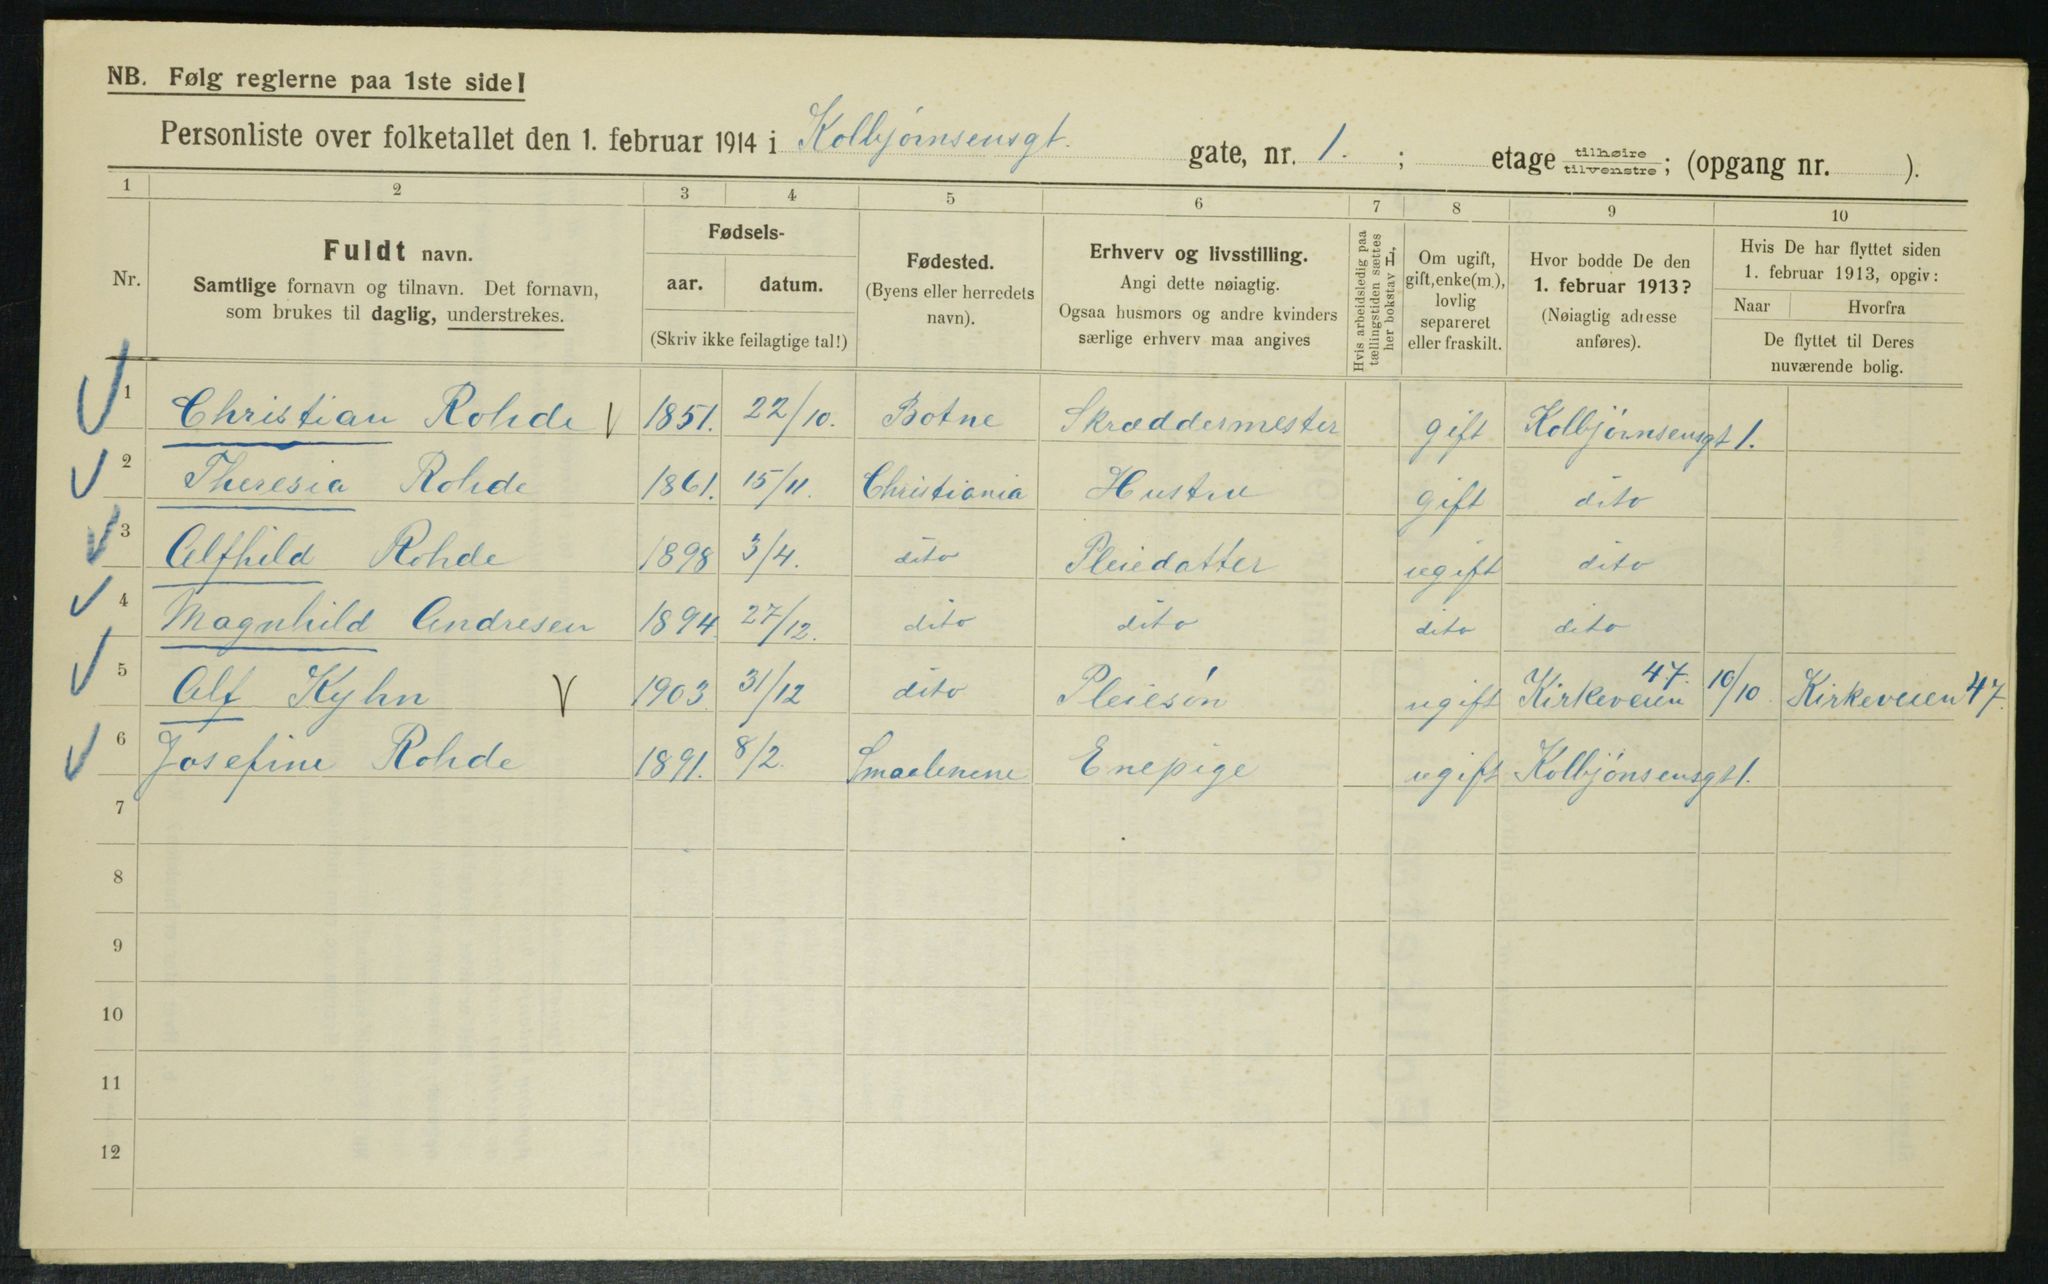 NB. Følg reglerne paa 1ste side!
Personliste over folketallet den 1. februar 1914 i Kolbjørnsensgt. gate, nr. 1. ; etage tilhøire/tilvenstre; (opgang nr. ).
1 2 3 4 5 6 7 8 9 10
Nr.
Fuldt navn.
Samtlige fornavn og tilnavn. Det fornavn,
som brukes til daglig, understrekes.
Fødsels-
aar. datum.
(Skriv ikke feilagtige tal!)
Fødested.
(Byens eller herredets
navn).
Erhverv og livsstilling.
Angi dette nøiagtig.
Ogsaa husmors og andre kvinders
særlige erhverv maa angives
Hvis arbeidsledig paa
tællingstiden sættes
her bokstav L,
Om ugift,
gift, enke(m.),
lovlig
separeret
eller fraskilt.
Hvor bodde De den
1. februar 1913?
(Nøiagtig adresse
anføres).
Hvis De har flyttet siden
1. februar 1913, opgiv:
Naar Hvorfra
De flyttet til Deres
nuværende bolig.
1 Christian Rohde V 1851. 22/10. Botne Skræddermester gift Kolbjørnsensgt 1.
2 Theresia Rohde 1861. 15/11. Christiania Hustru gift dito
3 Alfhild Rohde 1898 3/4. dito Pleiedatter ugift dito
4 Magnhild Andresen 1894. 27/12. dito dito dito dito
5 Alf Kyhn V 1903. 31/12 dito Pleiesøn ugift Kirkeveien 47. 10/10. Kirkeveien 47.
6 Josefine Rohde 1891. 8/2. Smaalenene Enepige ugift Kolbjønsensgt 1.
7
8
9
10
11
12